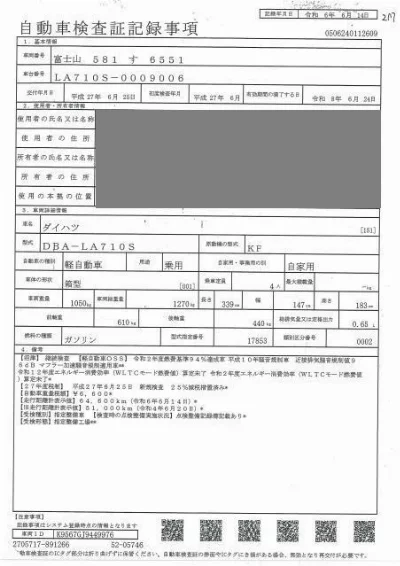 記録年月日 令和 6年 6月 14日
217
自動車検査証記録事項
0506240112609
1. 基本情報
車両番号 富士山 581 す 6551
車台番号 LA710S-0009006
交付年月日 平成 27年 6月 25日 初度検査年月 平成 27年 6月 有効期間の満了する日 令和 8年 6月 24日
2. 使用者・所有者情報
使用者の氏名又は名称
使用者の住所
所有者の氏名又は名称
所有者の住所
使用の本拠の位置
3. 車両詳細情報
車名 ダイハツ [151]
型式 DBA-LA710S 原動機の型式 KF
自動車の種別 軽自動車 用途 乗用 自家用・事業用の別 自家用
車体の形状 箱型 [001] 乗車定員 4人 最大積載量 -kg
車両重量 1050kg 車両総重量 1270kg 長さ 339cm 幅 147cm 高さ 183cm
前軸重 610kg 後軸重 440kg 総排気量又は定格出力 0.65L
燃料の種類 ガソリン 型式指定番号 17853 類別区分番号 0002
4. 備考
継続検査 【軽自動車OSS】 令和2年度燃費基準94%達成車 平成10年騒音規制車 近接排気騒音規制値9
5dB マフラー加速騒音規制適用車**
令和12年度エネルギー消費効率(WLTCモード燃費値)算定未了 令和2年度エネルギー消費効率(WLTCモード燃費値)
算定未了*
【27年度税制】 平成27年6月25日 新規検査 25%被税標置済み*
【自動車重量税額】¥6,600*
【走行距離計表示値】64,800km(令和6年6月14日)*
【旧走行距離計表示値】51,000km(令和4年6月20日)*
【受検種別】指定整備車 【検査時の点検整備実施状況】点検整備記録簿記載あり*
【受検形態】指定整備工場**
【注意事項】
記録事項はシステム登録時点の情報となります
車両ID K9567GJ9449976
2705717-891266 52-05746